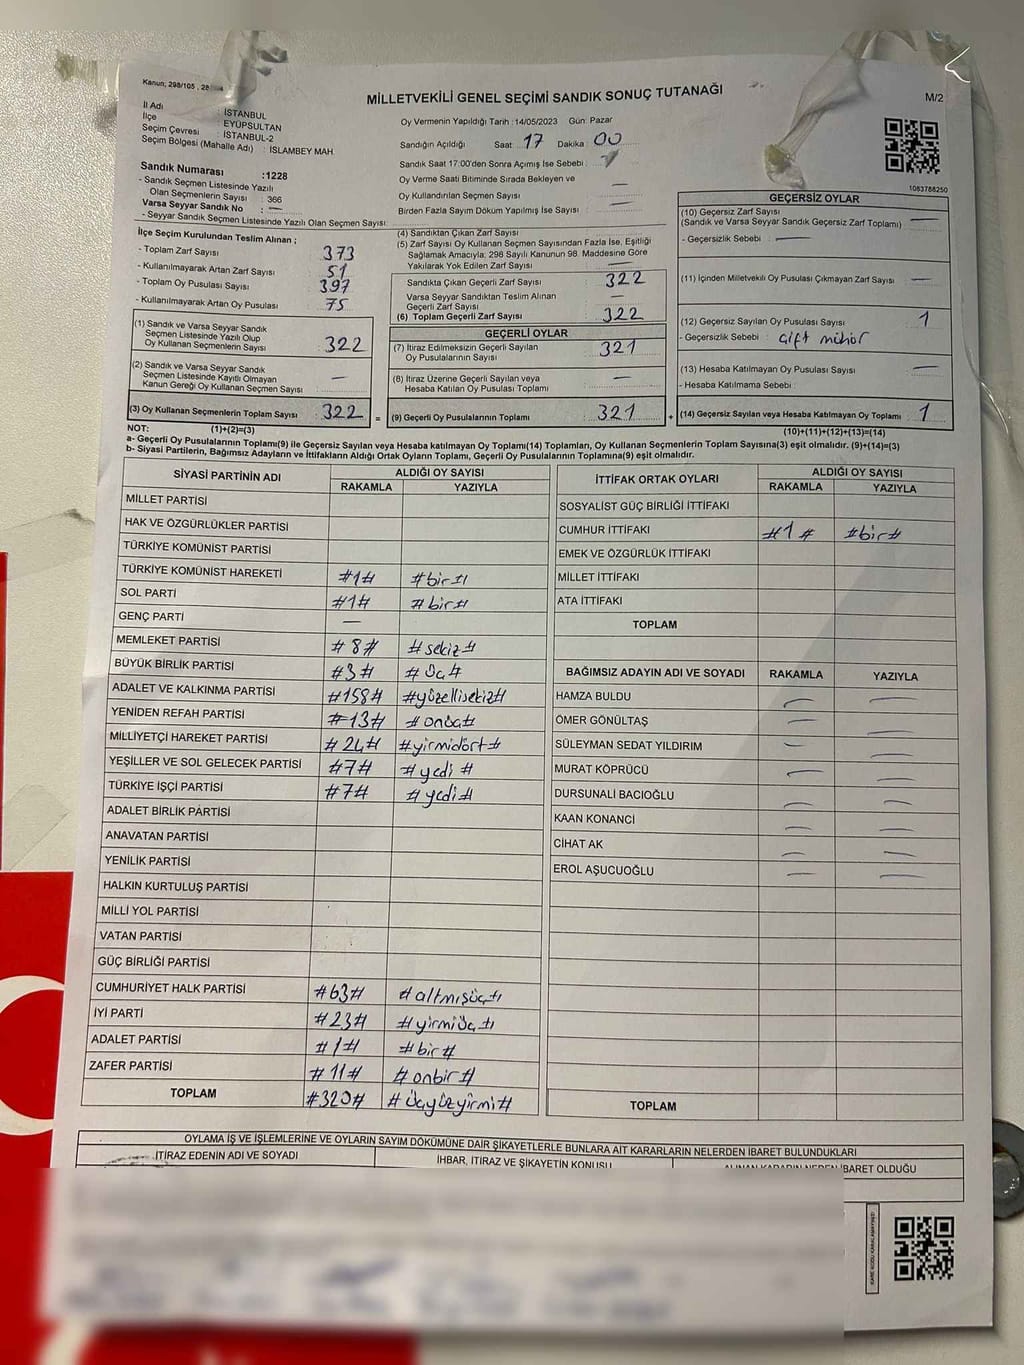 Kanun; 298/105 , 28
MİLLETVEKİLİ GENEL SEÇİMİ SANDIK SONUÇ TUTANAĞI
M/2
İl Adı : İSTANBUL
İlçe : EYÜPSULTAN
Seçim Çevresi : İSTANBUL-2
Seçim Bölgesi (Mahalle Adı) : İSLAMBEY MAH.
Oy Vermenin Yapıldığı Tarih :14/05/2023 Gün: Pazar
Sandığın Açıldığı Saat 17 Dakika 00
Sandık Saat 17:00'den Sonra Açımış İse Sebebi :
Oy Verme Saati Bitiminde Sırada Bekleyen ve
Oy Kullandırılan Seçmen Sayısı : —
Birden Fazla Sayım Döküm Yapılmış İse Sayısı : —
1083788250
Sandık Numarası :1228
- Sandık Seçmen Listesinde Yazılı
Olan Seçmenlerin Sayısı : 366
Varsa Seyyar Sandık No : —
- Seyyar Sandık Seçmen Listesinde Yazılı Olan Seçmen Sayısı:
İlçe Seçim Kurulundan Teslim Alınan ;
- Toplam Zarf Sayısı : 373
- Kullanılmayarak Artan Zarf Sayısı : 51
- Toplam Oy Pusulası Sayısı : 397
- Kullanılmayarak Artan Oy Pusulası : 75
(1) Sandık ve Varsa Seyyar Sandık
Seçmen Listesinde Yazılı Olup
Oy Kullanan Seçmenlerin Sayısı : 322
(2) Sandık ve Varsa Seyyar Sandık
Seçmen Listesinde Kayıtlı Olmayan
Kanun Gereği Oy Kullanan Seçmen Sayısı : —
(3) Oy Kullanan Seçmenlerin Toplam Sayısı : 322 =
(4) Sandıktan Çıkan Zarf Sayısı
(5) Zarf Sayısı Oy Kullanan Seçmen Sayısından Fazla İse, Eşitliği
Sağlamak Amacıyla; 298 Sayılı Kanunun 98. Maddesine Göre
Yakılarak Yok Edilen Zarf Sayısı : —
Sandıkta Çıkan Geçerli Zarf Sayısı : 322
Varsa Seyyar Sandıktan Teslim Alınan
Geçerli Zarf Sayısı : —
(6) Toplam Geçerli Zarf Sayısı : 322
GEÇERLİ OYLAR
(7) İtiraz Edilmeksizin Geçerli Sayılan
Oy Pusulalarının Sayısı : 321
(8) İtiraz Üzerine Geçerli Sayılan veya
Hesaba Katılan Oy Pusulası Toplamı : —
(9) Geçerli Oy Pusulalarının Toplamı : 321 +
GEÇERSİZ OYLAR
(10) Geçersiz Zarf Sayısı
(Sandık ve Varsa Seyyar Sandık Geçersiz Zarf Toplamı) : —
- Geçersizlik Sebebi : —
(11) İçinden Milletvekili Oy Pusulası Çıkmayan Zarf Sayısı : —
(12) Geçersiz Sayılan Oy Pusulası Sayısı : 1
- Geçersizlik Sebebi : çift mühür
(13) Hesaba Katılmayan Oy Pusulası Sayısı : —
- Hesaba Katılmama Sebebi :
(14) Geçersiz Sayılan veya Hesaba Katılmayan Oy Toplamı : 1
NOT: (1)+(2)=(3)
(10)+(11)+(12)+(13)=(14)
a- Geçerli Oy Pusulalarının Toplamı(9) ile Geçersiz Sayılan veya Hesaba katılmayan Oy Toplamı(14) Toplamları, Oy Kullanan Seçmenlerin Toplam Sayısına(3) eşit olmalıdır. (9)+(14)=(3)
b- Siyasi Partilerin, Bağımsız Adayların ve İttifakların Aldığı Ortak Oyların Toplamı, Geçerli Oy Pusulalarının Toplamına(9) eşit olmalıdır.
SİYASİ PARTİNİN ADI ALDIĞI OY SAYISI
RAKAMLA YAZIYLA
MİLLET PARTİSİ
HAK VE ÖZGÜRLÜKLER PARTİSİ
TÜRKİYE KOMÜNİST PARTİSİ
TÜRKİYE KOMÜNİST HAREKETİ #1# #bir#
SOL PARTİ #1# #bir#
GENÇ PARTİ —
MEMLEKET PARTİSİ #8# #sekiz#
BÜYÜK BİRLİK PARTİSİ #3# #üç#
ADALET VE KALKINMA PARTİSİ #158# #yüzellisekiz#
YENİDEN REFAH PARTİSİ #13# #onüç#
MİLLİYETÇİ HAREKET PARTİSİ #24# #yirmidört#
YEŞİLLER VE SOL GELECEK PARTİSİ #7# #yedi#
TÜRKİYE İŞÇİ PARTİSİ #7# #yedi#
ADALET BİRLİK PARTİSİ
ANAVATAN PARTİSİ
YENİLİK PARTİSİ
HALKIN KURTULUŞ PARTİSİ
MİLLİ YOL PARTİSİ
VATAN PARTİSİ
GÜÇ BİRLİĞİ PARTİSİ
CUMHURİYET HALK PARTİSİ #63# #altmışüç#
İYİ PARTİ #23# #yirmiüç#
ADALET PARTİSİ #1# #bir#
ZAFER PARTİSİ #11# #onbir#
TOPLAM #320# #üçyüzyirmi#
İTTİFAK ORTAK OYLARI ALDIĞI OY SAYISI
RAKAMLA YAZIYLA
SOSYALİST GÜÇ BİRLİĞİ İTTİFAKI
CUMHUR İTTİFAKI #1# #bir#
EMEK VE ÖZGÜRLÜK İTTİFAKI
MİLLET İTTİFAKI
ATA İTTİFAKI
TOPLAM
BAĞIMSIZ ADAYIN ADI VE SOYADI RAKAMLA YAZIYLA
HAMZA BULDU — —
ÖMER GÖNÜLTAŞ — —
SÜLEYMAN SEDAT YILDIRIM — —
MURAT KÖPRÜCÜ — —
DURSUNALİ BACIOĞLU — —
KAAN KONANCİ — —
CİHAT AK — —
EROL AŞUCUOĞLU — —
TOPLAM
OYLAMA İŞ VE İŞLEMLERİNE VE OYLARIN SAYIM DÖKÜMÜNE DAİR ŞİKAYETLERLE BUNLARA AİT KARARLARIN NELERDEN İBARET BULUNDUKLARI
İTİRAZ EDENİN ADI VE SOYADI İHBAR, İTİRAZ VE ŞİKAYETİN KONUSU ALINAN KARARIN NEDEN İBARET OLDUĞU